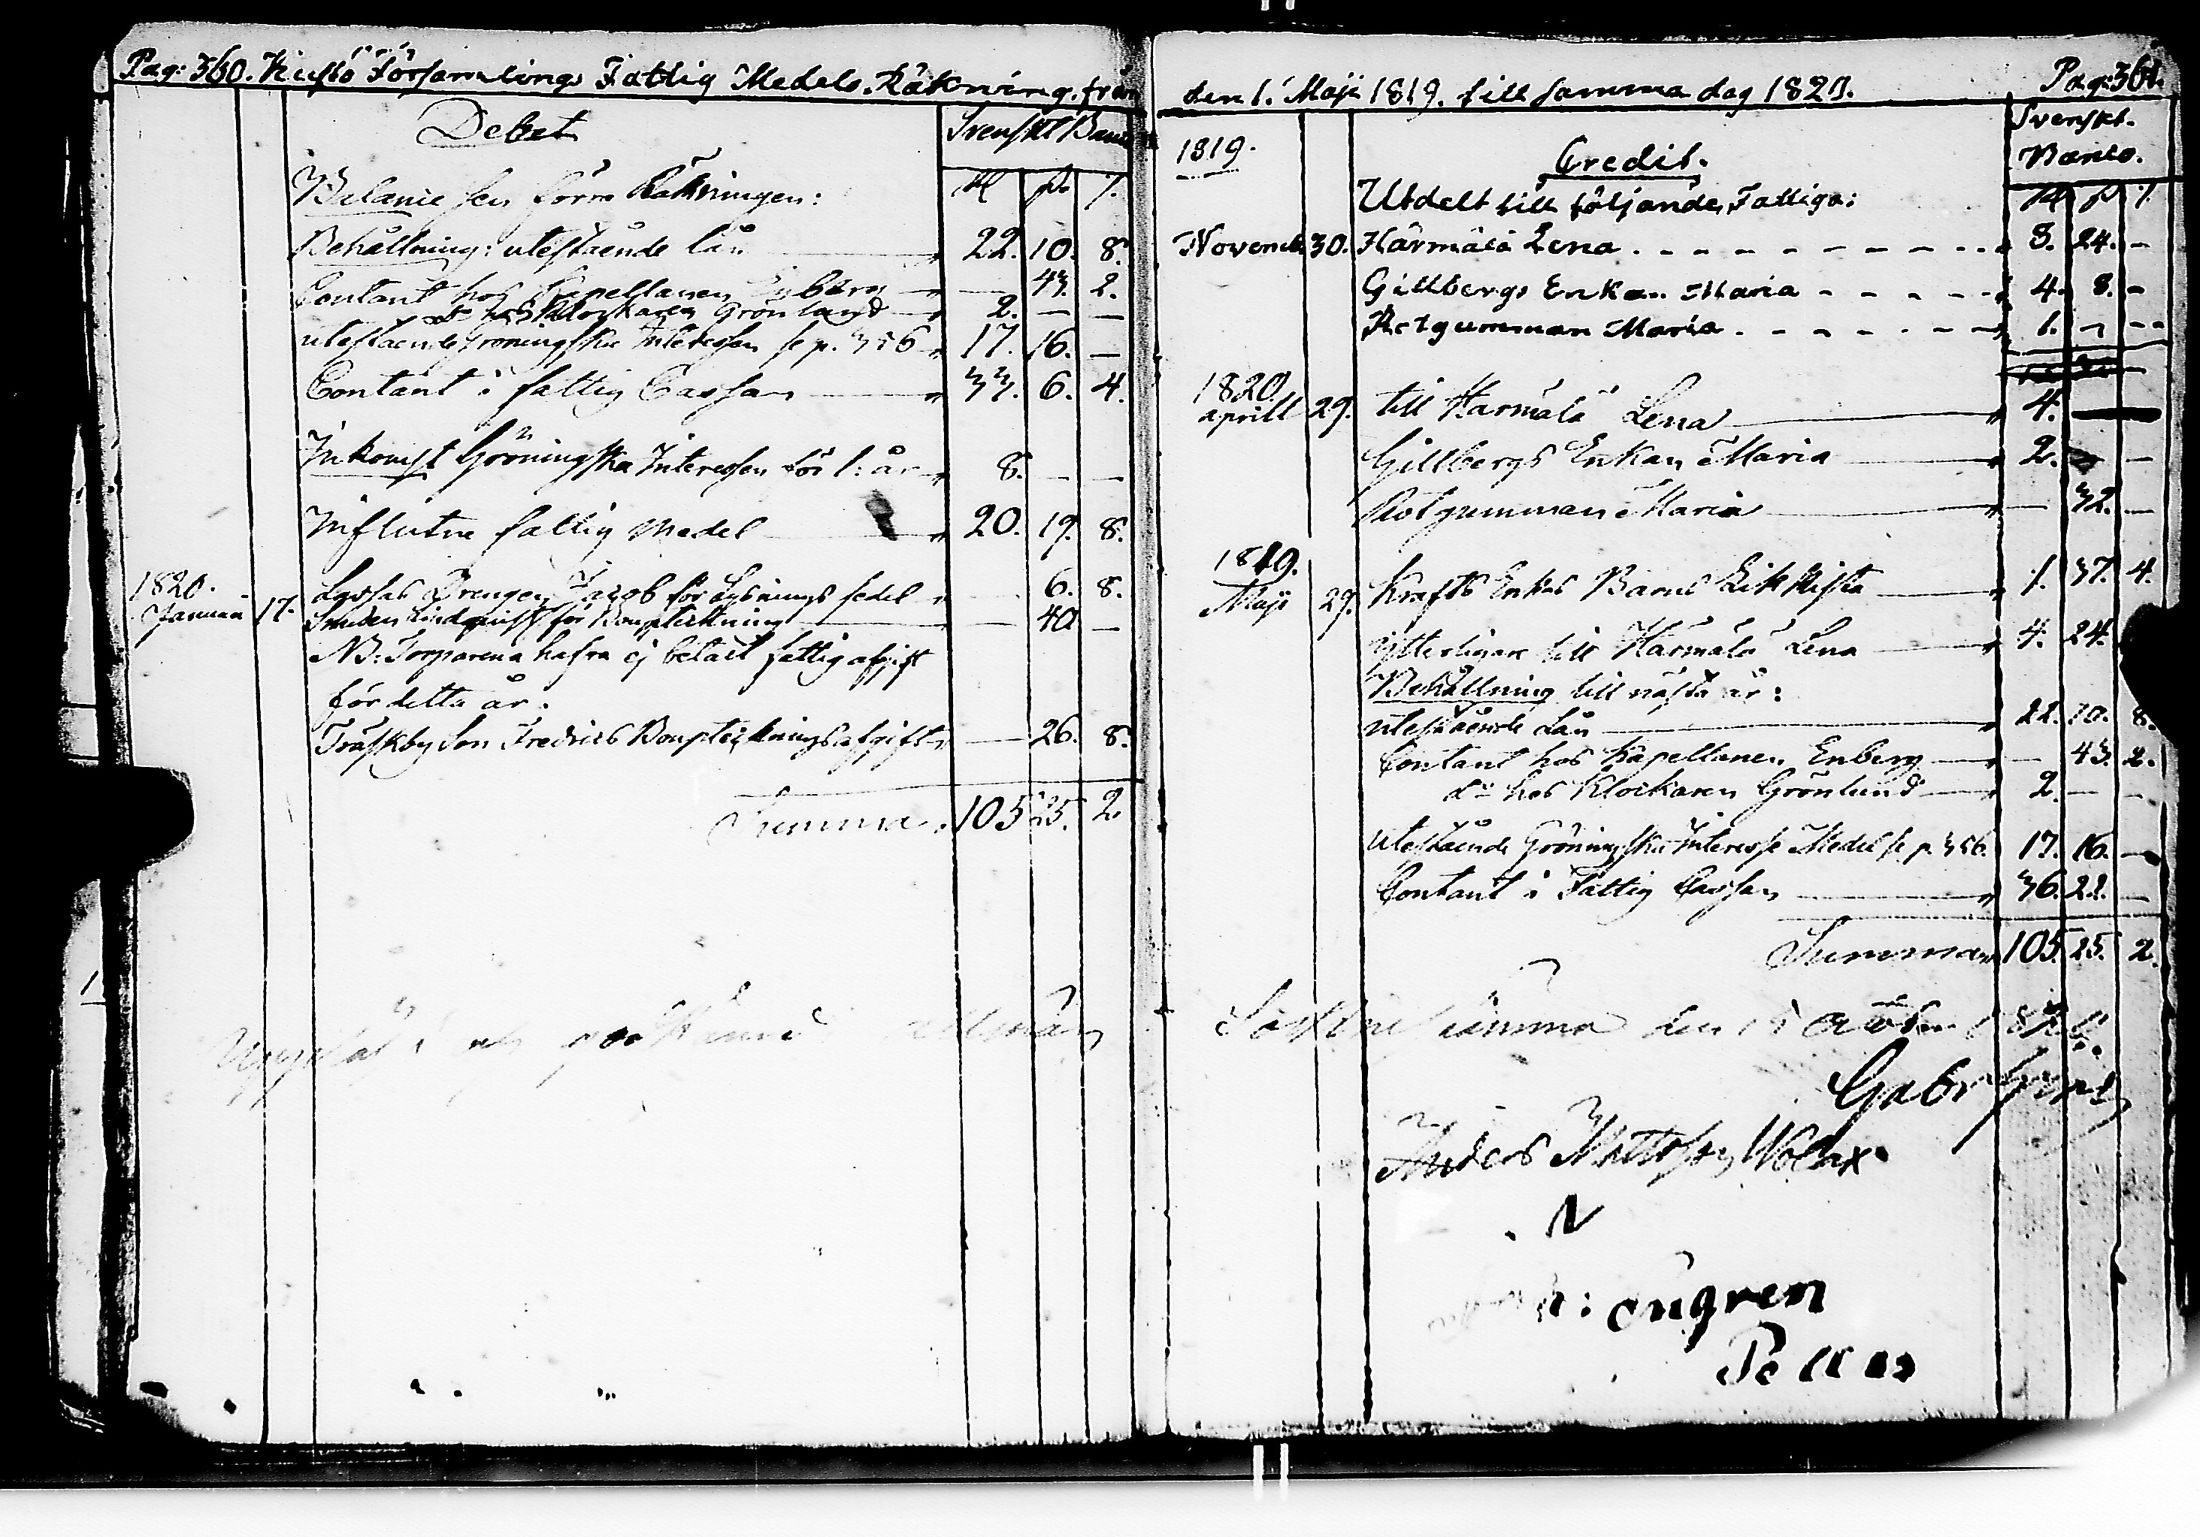 Pag: 360. Kustö Församlings Fattig Medels Räkning från
Debet
Svenskt Banco
Rd sk. r.
Balance sen förra Räkningen:
Behållning: utestående lån 22. 10. 8.
Contant hos Kapellanen Enberg — 43. 2.
do hos Klockaren Grönlund 2. — —
utestående Gröningska Interessen se p. 356 17. 16. —
Contant i fattig Cassan 33. 6. 4.
Inkomst Gröningska Interessen för 1: år 8. — —
Influtne fattig Medel 20. 19. 8.
1820.
Januari 17. Drengen Jacob för Lysnings sedel 6. 8.
Lindqvist för Bouptekning — 40 —
NB: Torparena hafva ej betalt fattig afgift
för detta år.
Träskby Son Fredrics Boupteckningsafgift — 26. 8.
Summa 105 25. 2.
den 1. Maji 1819. till samma dag 1820.
Pag: 361.
1819.
Credit.
Svenskt.
Banco.
Utdelt till följande Fattiga:
Novemb 30. Härmälä Lena 3. 24. —
Gillbergs Enkan Maria 4. 8. —
Rotgumman Maria 1. — —
1820.
aprill 29. till Harmälä Lena 4. —
Gillbergs Enkan Maria 2. — —
Rotgumman Maria — 32. —
1819.
Maji 29. Krafts Enkas Barns Likkista 1. 37. 4.
ytterligare till Härmälä Lena 4. 24.
Behållning till nästa år:
utestående Lån 22. 10. 8.
Contant hos Kapellanen Enberg — 43. 2.
do hos Klockaren Grönlund 2. — —
utestående Gröningska Interesse Medel se p. 356. 17. 16. —
Contant i Fattig Cassan 36. 22. —
Summa 105. 25. 2.
den 15
Anders Mattsson Wolax